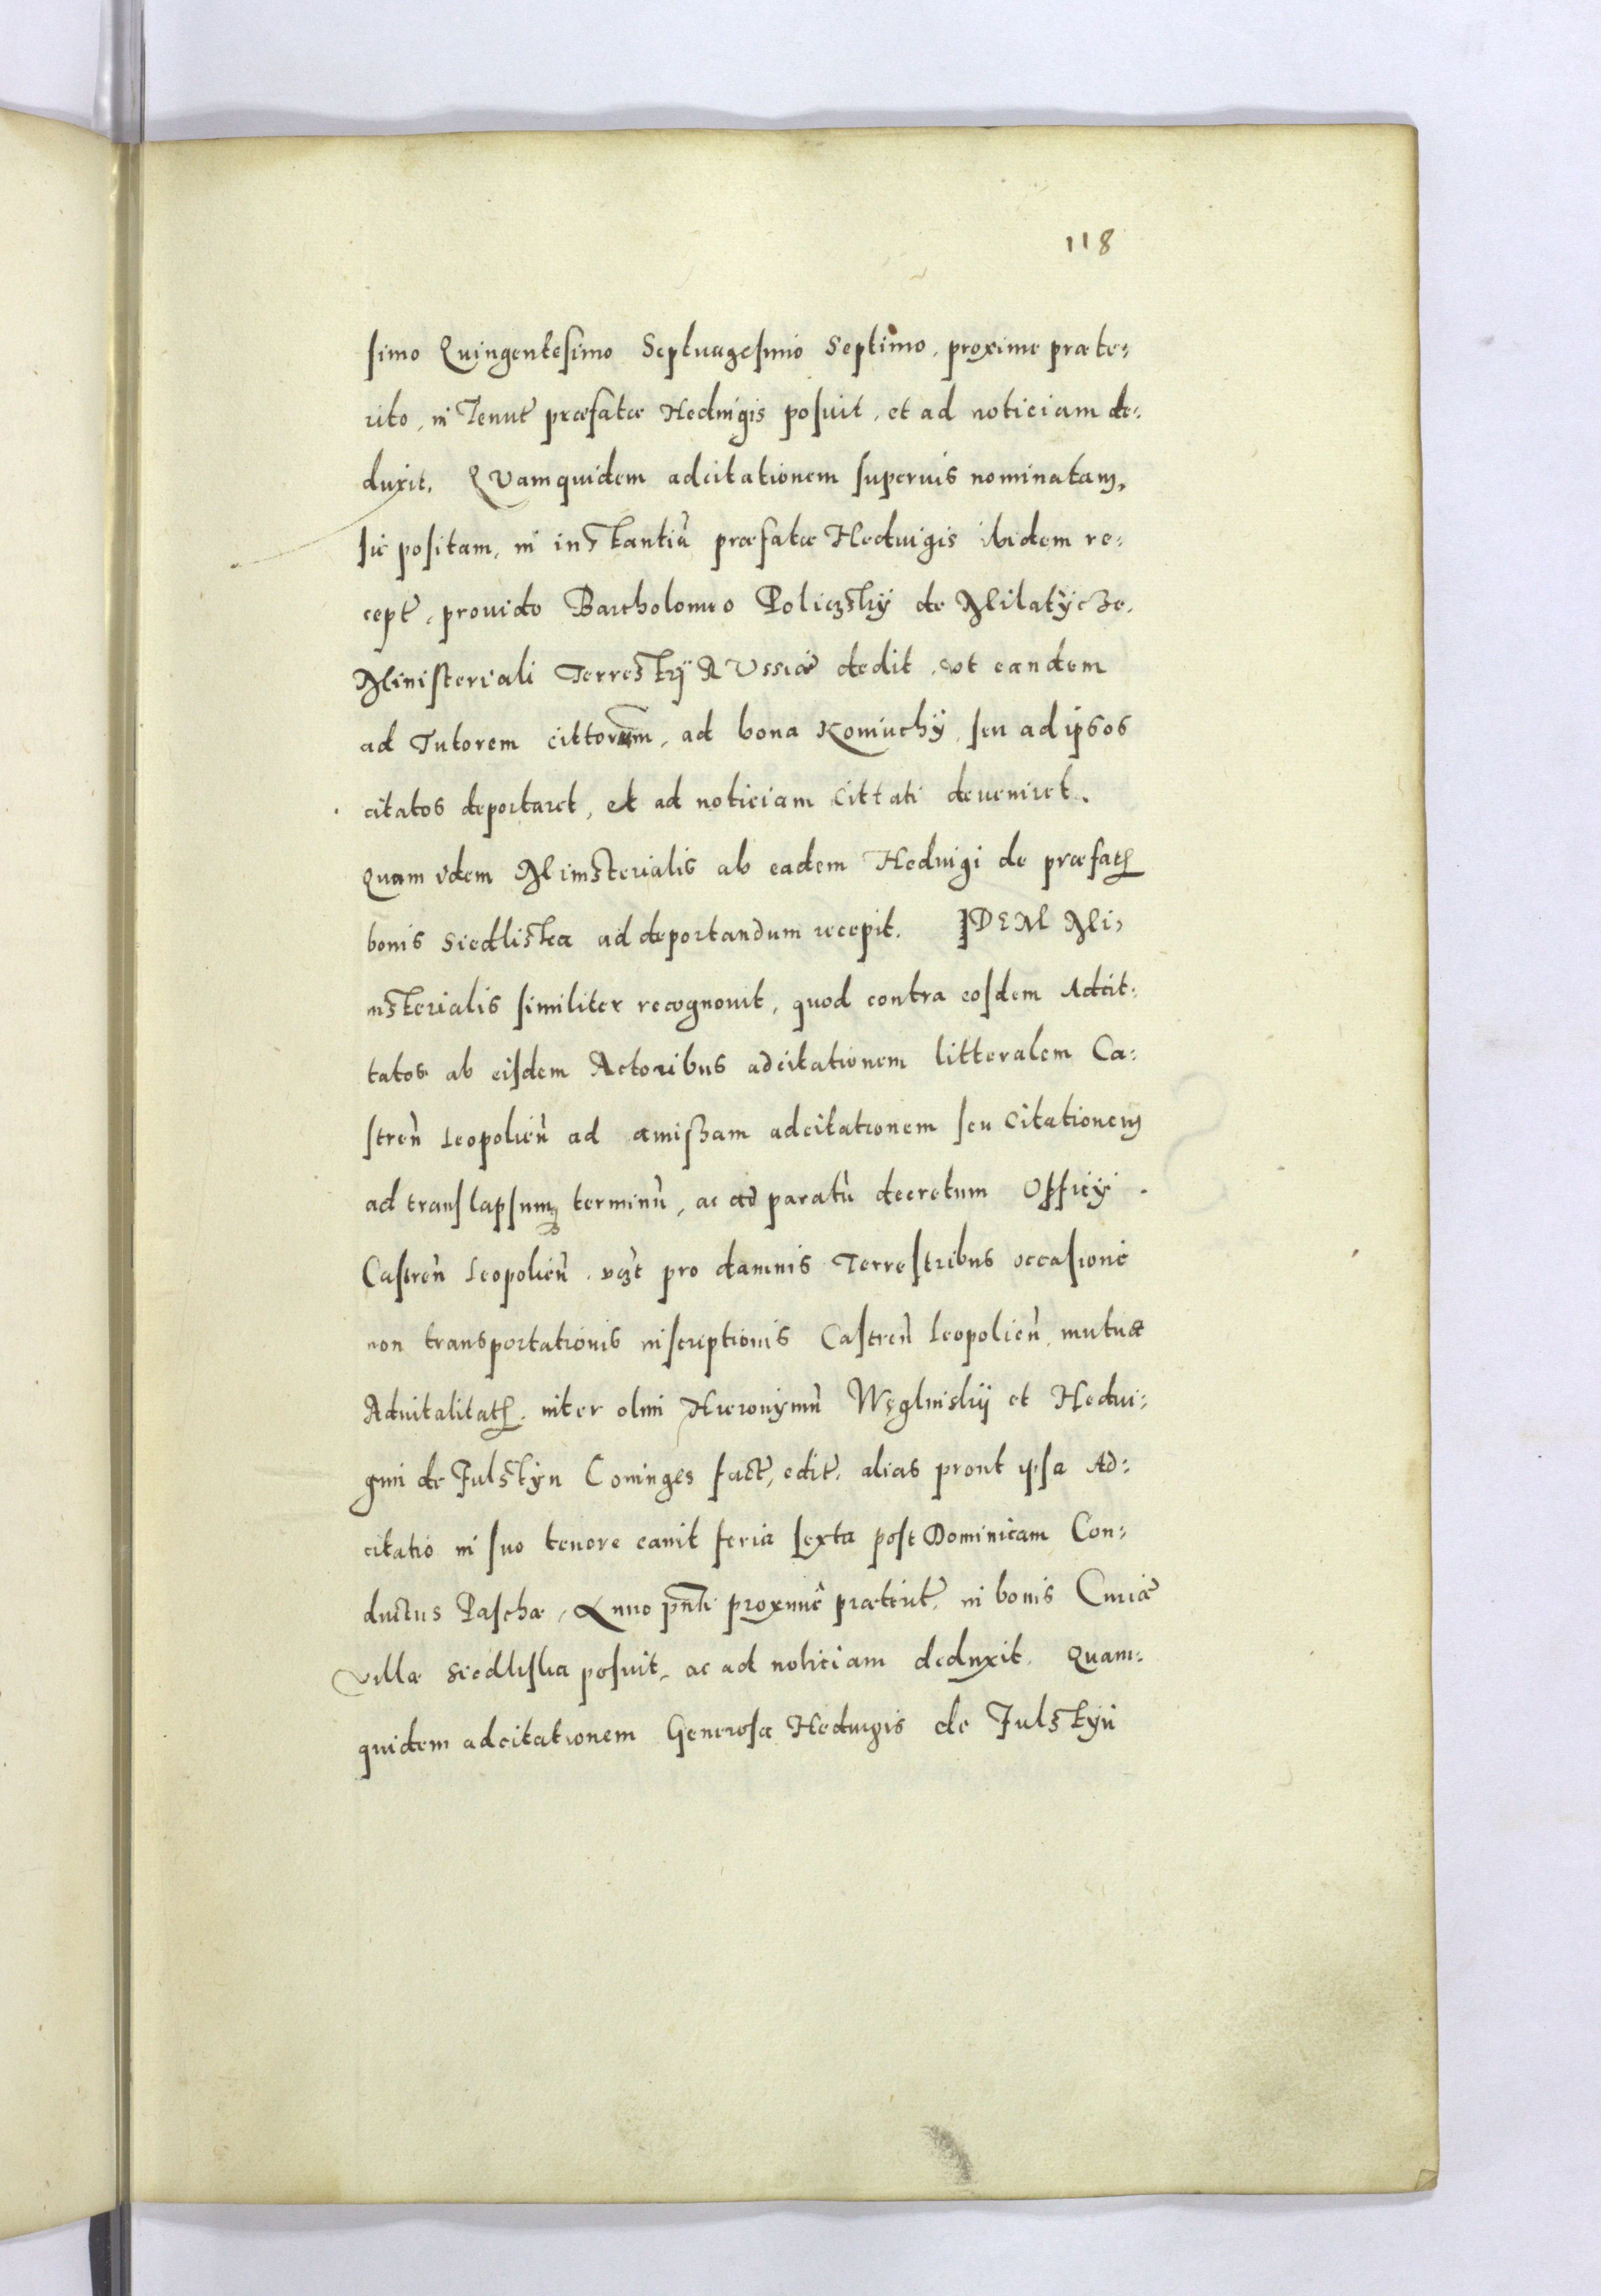 118
simo Quingentesimo Septuagesimo Septimo, proxime præte:
rito, in Tenut præfatæ Heduigis posuit, et ad noticiam de:
duxit. QVamquidem adcitationem superius nominatam,
sic positam, in instantiũ præfatæ Heduigis ibidem re:
cept, prouido Bartholomeo Policzskÿ de Milatÿcze.
Ministeriali Terrestrÿ RVssiæ dedit, vt eandem
ad Tutorem cittorum, ad bona Koniuchÿ, seu ad ipsos
citatos deportaret, et ad noticiam Cittati deueniret.
Quam idem Ministerialis ab eadem Heduigi de præfat
bonis Siedliska ad deportandum recepit. IDEM Mi:
nisterialis similiter recognouit, quod contra eosdem Adcit:
tatos ab eisdem Actoribus adcitationem litteralem Ca:
streñ Leopolieñ ad amissam adcitationem seu Citationem
ad translapsum terminũ, ac ad paratũ decretum Officÿ
Castreñ Leopolieñ, pro damnis Terrestribus occasione
non transportationis inscriptionis Castreñ Leopolieñ mutuæ
Aduitalitat, inter olim Hieronÿmũ Węglinskÿ et Hedui:
gim de Fulstÿn Coniuges fact, edit, alias prout ipsa Ad:
citatio in suo tenore canit feria sexta post Dominicam Con:
ductus Paschæ, Anno pñti proxime præterit, in bonis Curiæ
villæ Siedliska posuit, ac ad noticiam deduxit. Quam:
quidem adcitationem Generosa Heduigis de Fulstÿn